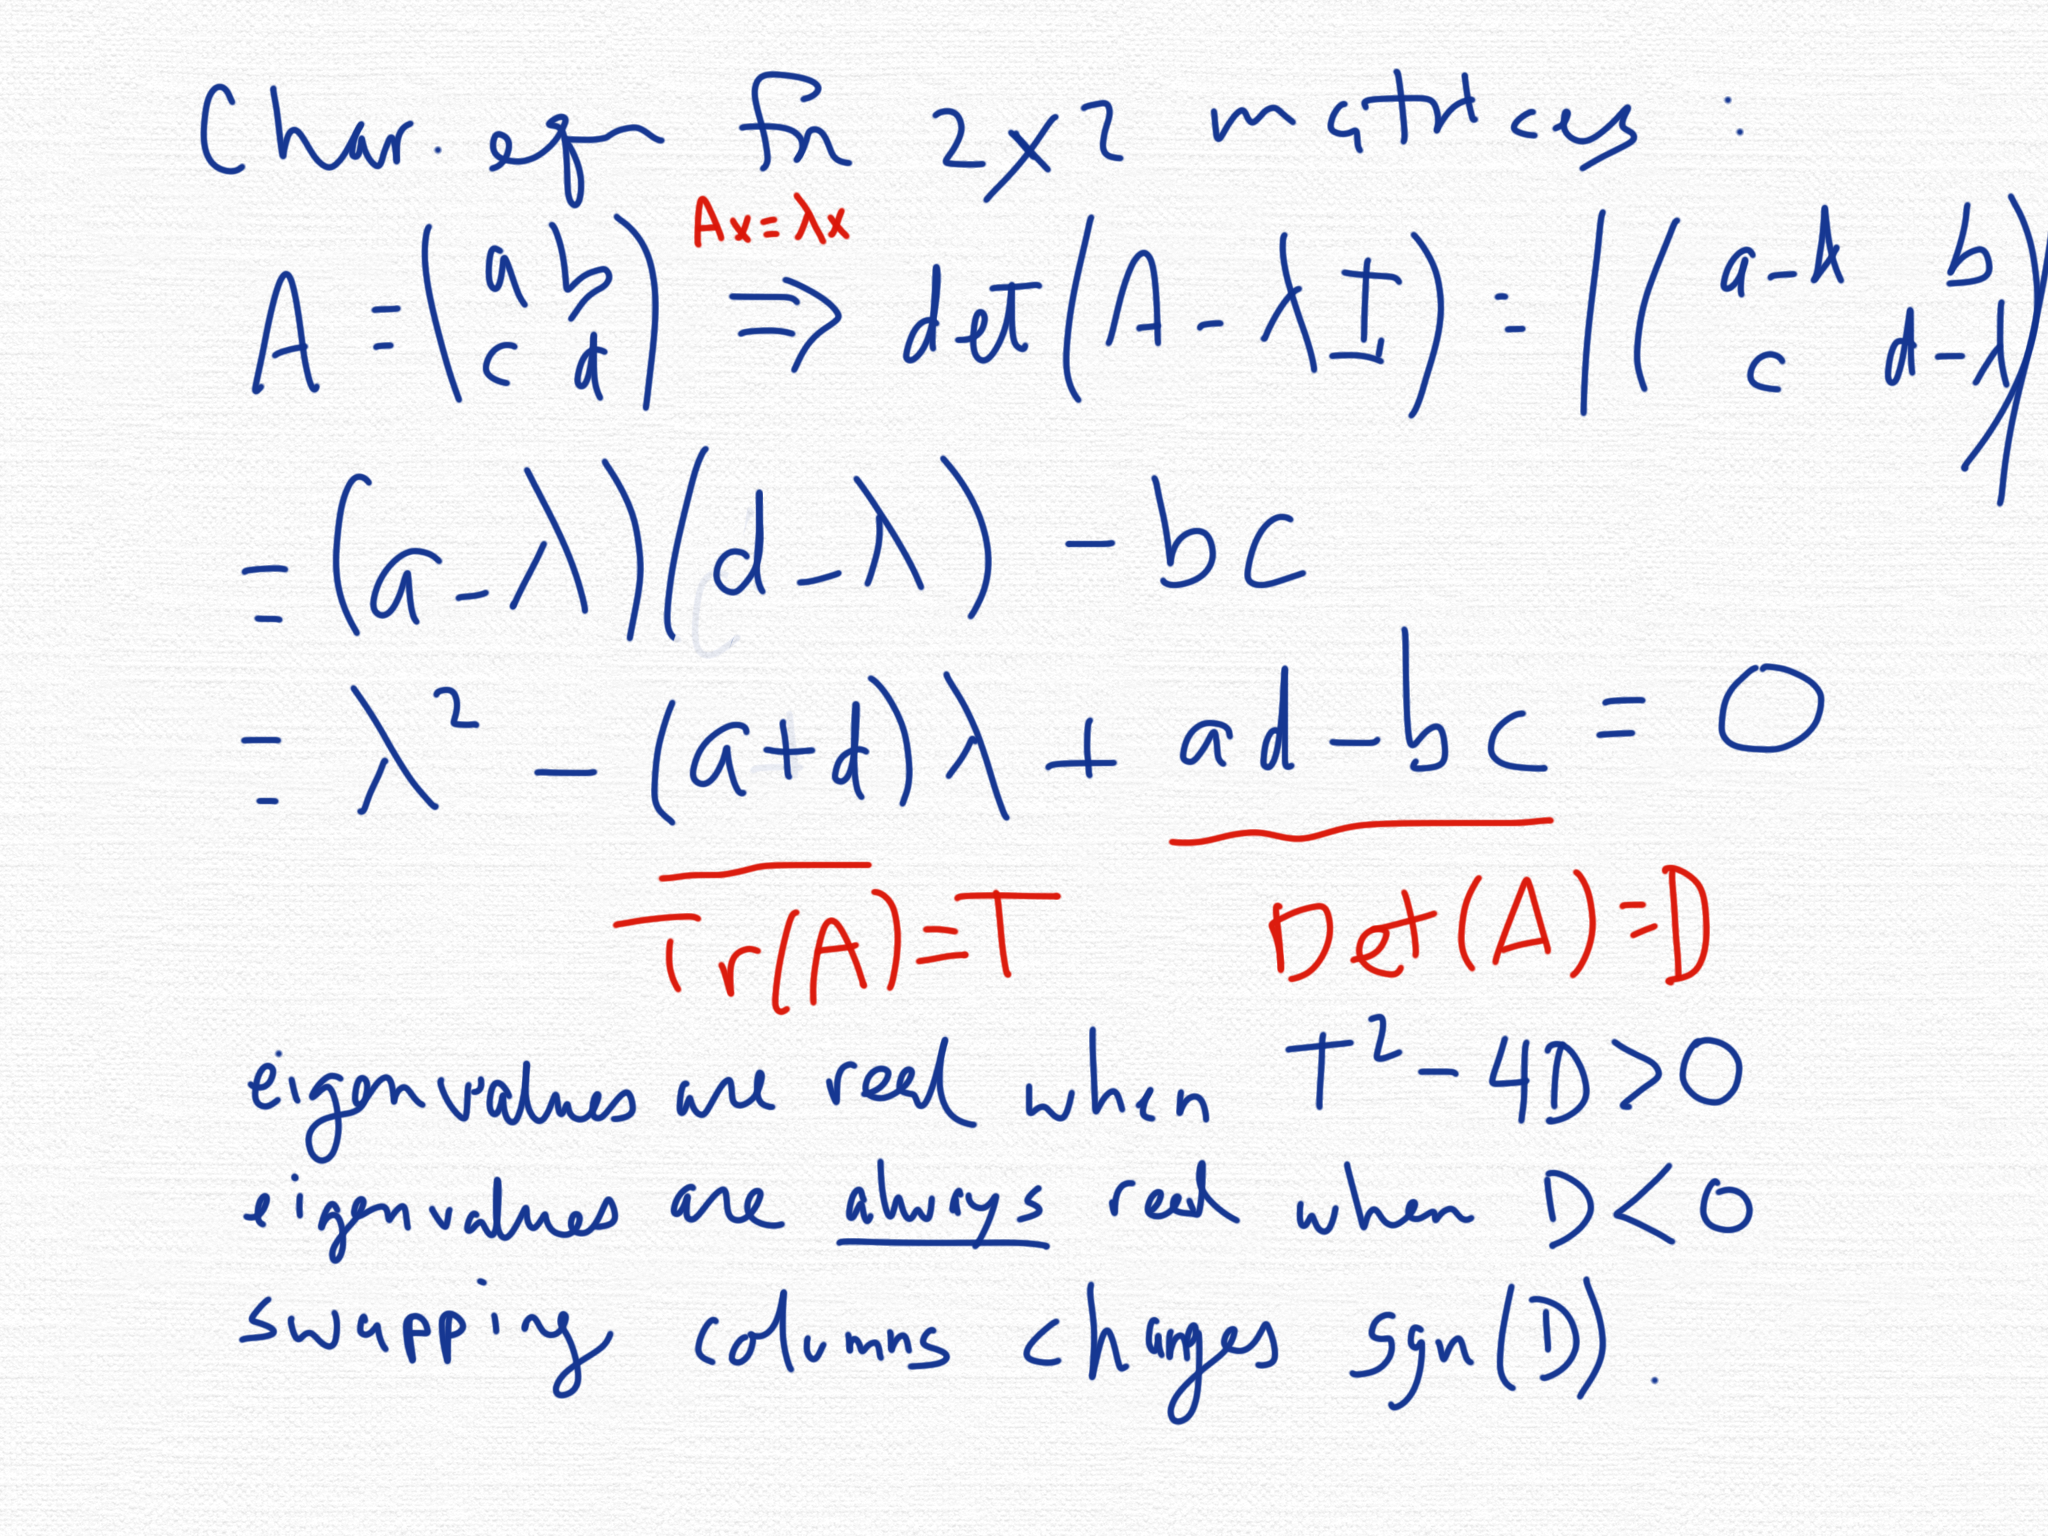 Char. eqn for 2x2 matrices :
Ax = λx
A = (a b c d) ⇒ det(A - λI) = |(a-λ b c d-λ)|
= (a-λ)(d-λ) - bc
= λ² - (a+d)λ + ad - bc = 0
Tr(A) = T Det(A) = D
eigenvalues are real when T² - 4D > 0
eigenvalues are always real when D < 0
swapping columns changes sgn(D).